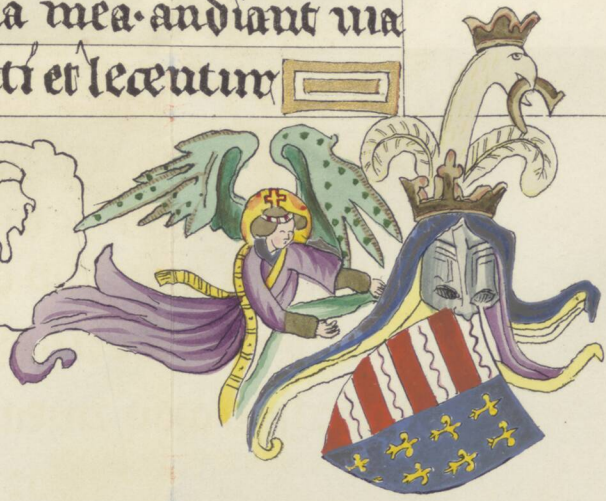 a mea·audiant ma
ti et letentur